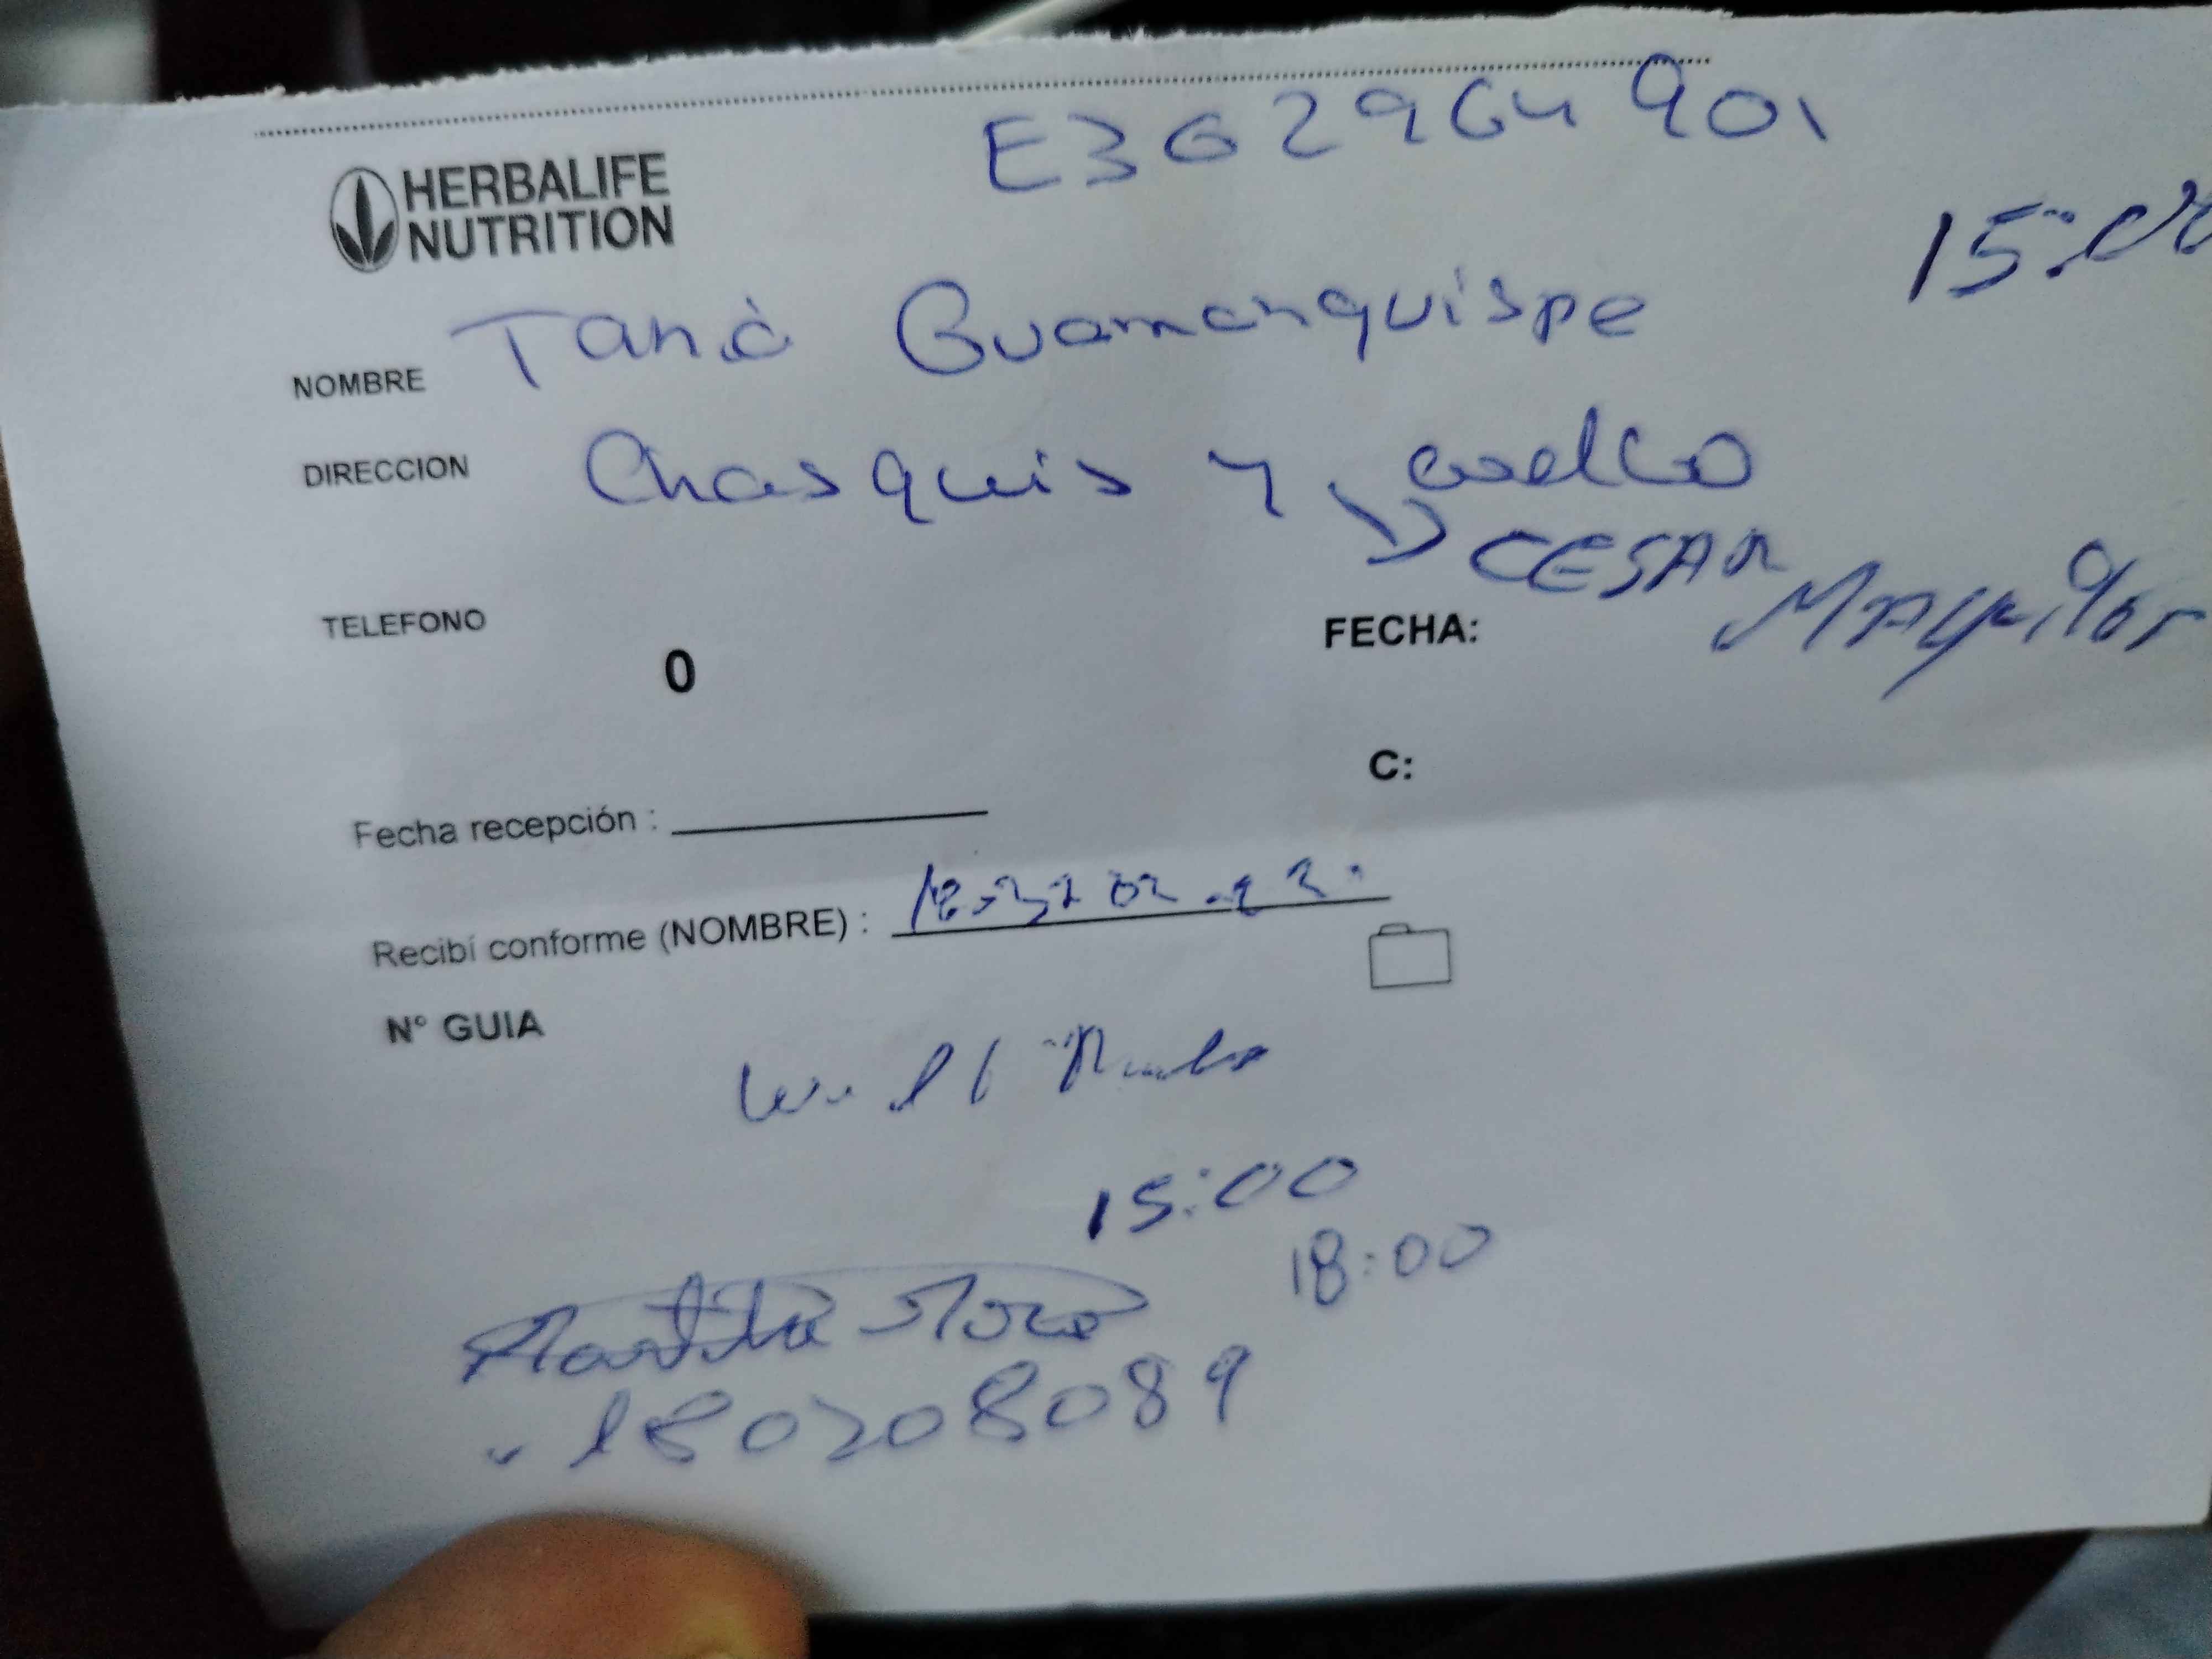 E362964901
HERBALIFE
NUTRITION
15:00
NOMBRE Tania Guamanquispe
DIRECCION Chasquis y
CESAR
TELEFONO
0
FECHA:
C:
Fecha recepción :
Recibí conforme (NOMBRE) :
N° GUIA
15:00
18:00
180208089